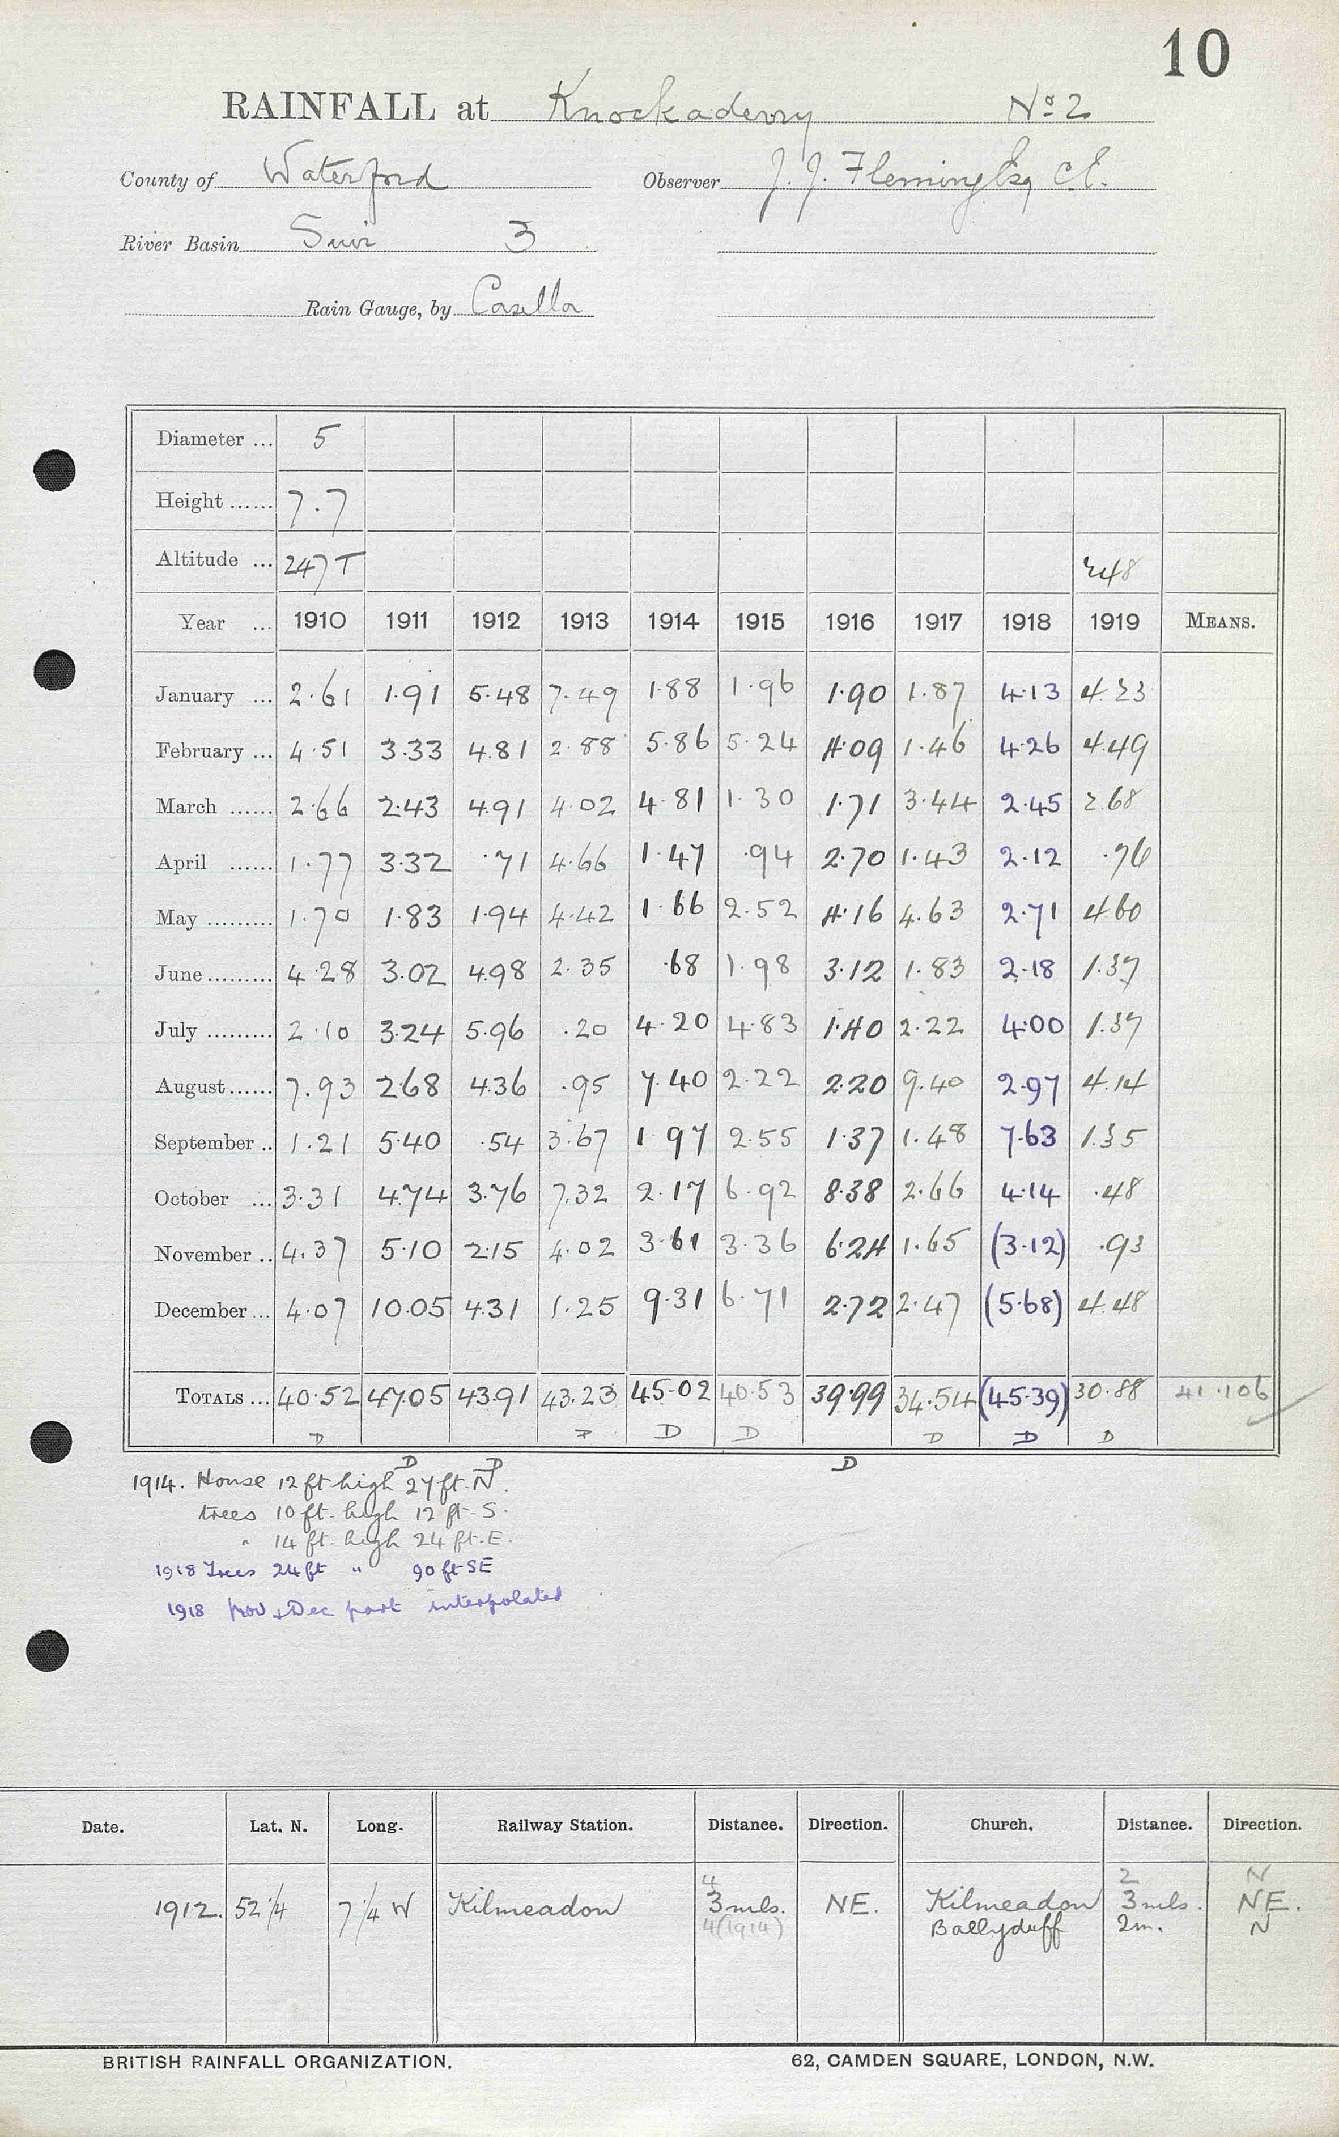 10
RAINFALL at Knockaderry No 2
County of Waterford Observer J. J. Fleming Esq C.E.
River Basin Suir 3
Rain Gauge, by Casella
Diameter ... 5
Height ...... 7.7
Altitude ... 247 T 248
Year ... 1910 1911 1912 1913 1914 1915 1916 1917 1918 1919 MEANS.
January ... 2.61 1.91 5.48 7.49 1.88 1.96 1.90 1.87 4.13 4.23
February ... 4.51 3.33 4.81 2.88 5.86 5.24 4.09 1.46 4.26 4.49
March ...... 2.66 2.43 4.91 4.02 4.81 1.30 1.71 3.44 2.45 2.68
April ...... 1.77 3.32 .71 4.66 1.47 .94 2.70 1.43 2.12 .76
May ......... 1.70 1.83 1.94 4.42 1.66 2.52 4.16 4.63 2.71 4.60
June ......... 4.28 3.02 4.98 2.35 .68 1.98 3.12 1.83 2.18 1.37
July ......... 2.10 3.24 5.96 .20 4.20 4.83 1.40 2.22 4.00 1.37
August ...... 7.93 2.68 4.36 .95 7.40 2.22 2.20 9.40 2.97 4.14
September .. 1.21 5.40 .54 3.67 1.97 2.55 1.37 1.48 7.63 1.35
October ... 3.31 4.74 3.76 7.32 2.17 6.92 8.38 2.66 4.14 .48
November .. 4.37 5.10 2.15 4.02 3.61 3.36 6.24 1.65 (3.12) .93
December ... 4.07 10.05 4.31 1.25 9.31 6.71 2.72 2.47 (5.68) 4.48
TOTALS ... 40.52 47.05 43.91 43.23 45.02 40.53 39.99 34.54 (45.39) 30.88 41.106
D D D D D D D
D D D
1914. House 12 ft high 27 ft. N.
trees 10 ft. high 12 ft. S.
" 14 ft. high 24 ft. E.
1918 Trees 24 ft " 90 ft SE
1918 Nov & Dec part interpolated
Date. Lat. N. Long. Railway Station. Distance. Direction. Church. Distance. Direction.
4 2 N
1912. 52 1/4 7 1/4 W Kilmeadon 3 mls. NE. Kilmeadon 3 mls. NE.
4 (1914) Ballyduff 2m. N
BRITISH RAINFALL ORGANIZATION. 62, CAMDEN SQUARE, LONDON, N.W.